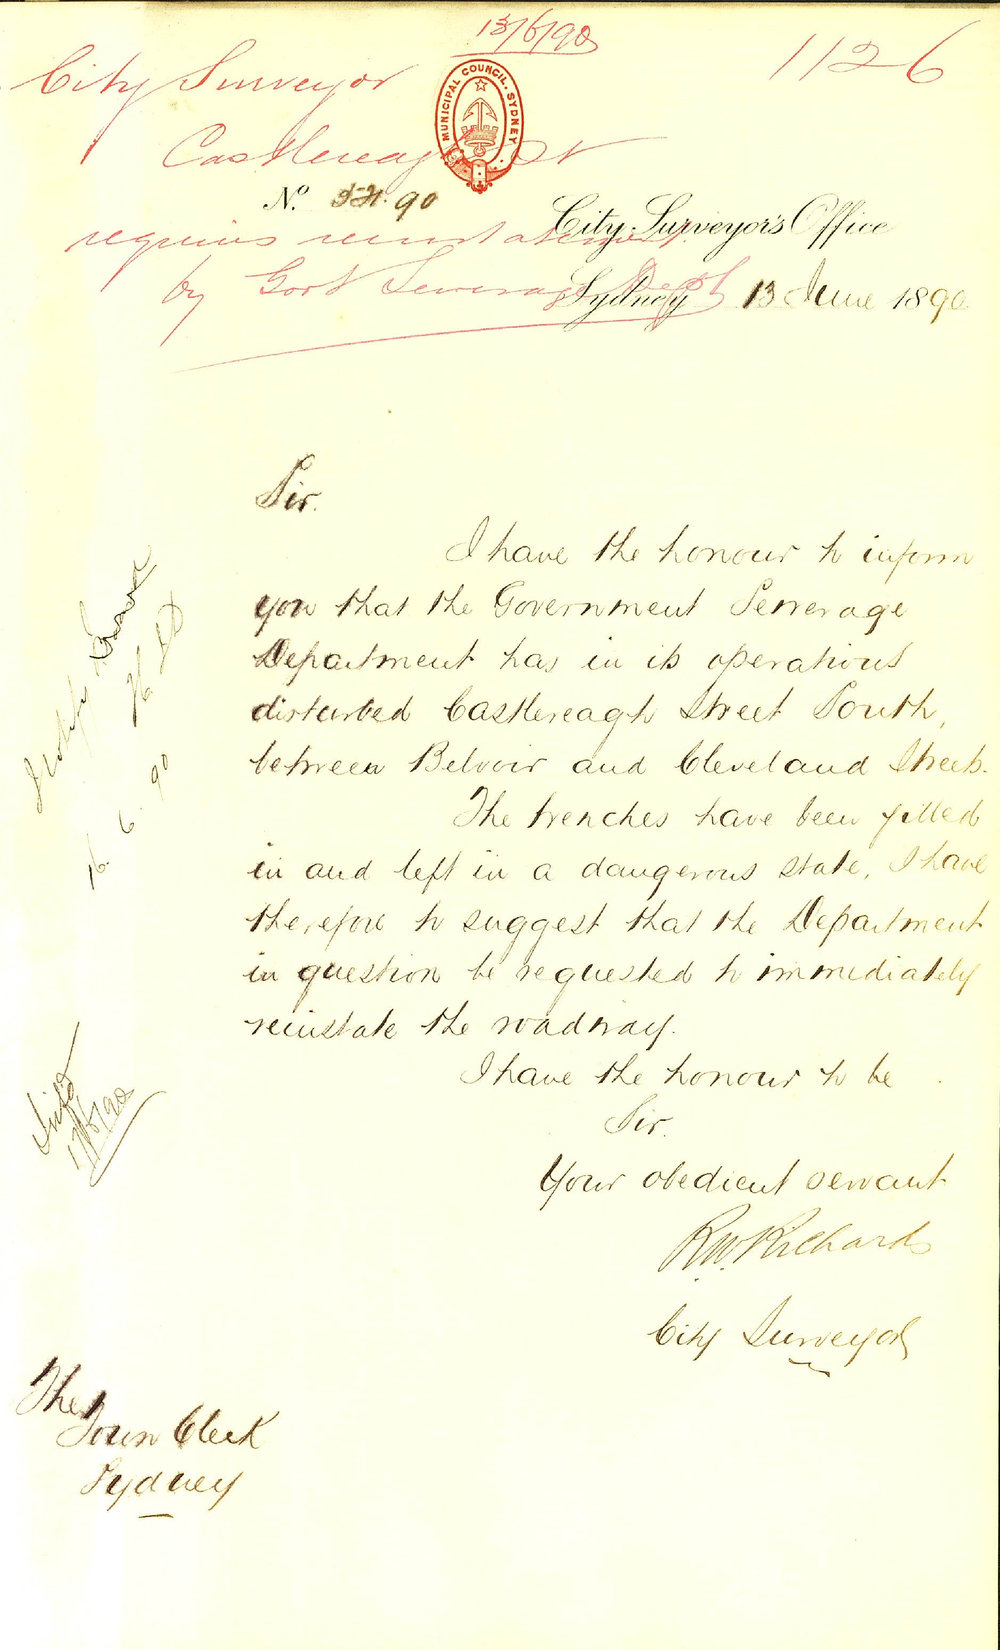 13/6/90
1126
City Surveyor
MUNICIPAL COUNCIL. SYDNEY
Castlereagh St
requires reinstatement
by Govt Sewerage Dept
No. 90
City Surveyor's Office
Sydney 13 June 1890
Sir.
I have the honour to inform
you that the Government Sewerage
Department has in its operations
disturbed Castlereagh Street South,
between Belvoir and Cleveland Streets.
The trenches have been filled
in and left in a dangerous state, I have
therefore to suggest that the Department
in question be requested to immediately
reinstate the roadway.
I have the honour to be
Sir.
Your obedient servant
R.W. Richards
City Surveyor
The
Town Clerk
Sydney
16. 6. 90
17/6/90